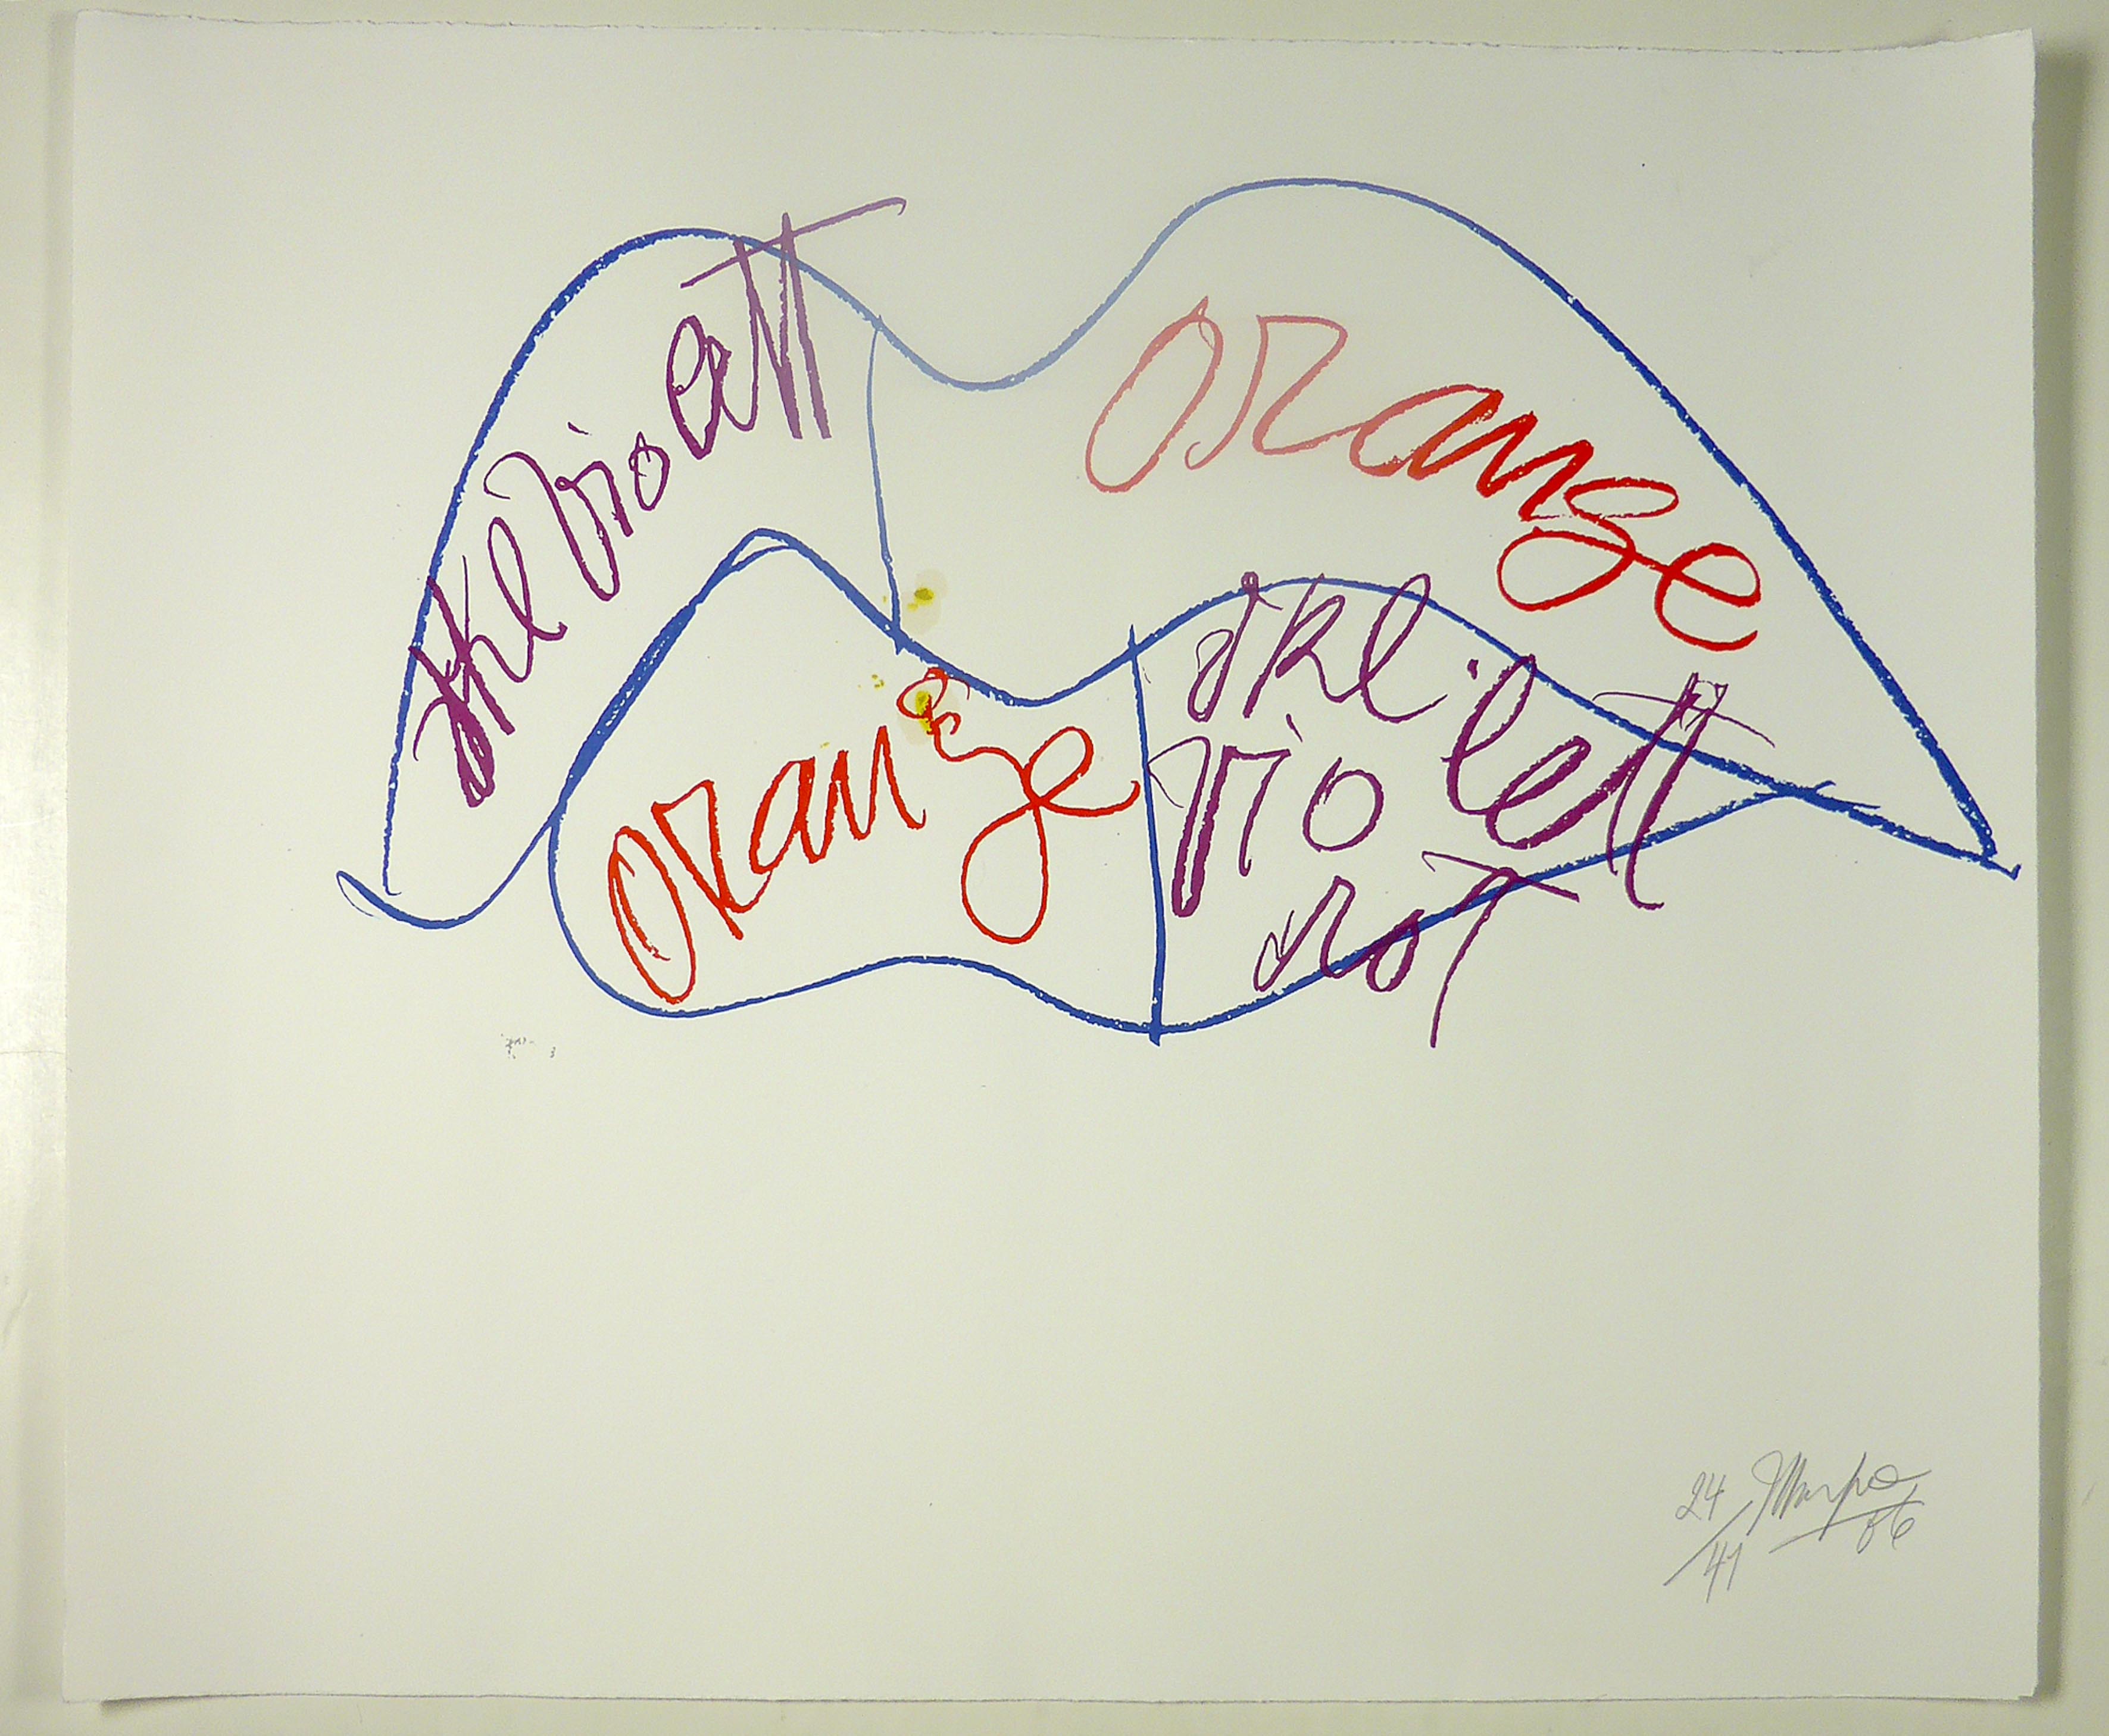 dkl violett
orange
orange
dkl.
violett
rot
24/41
86